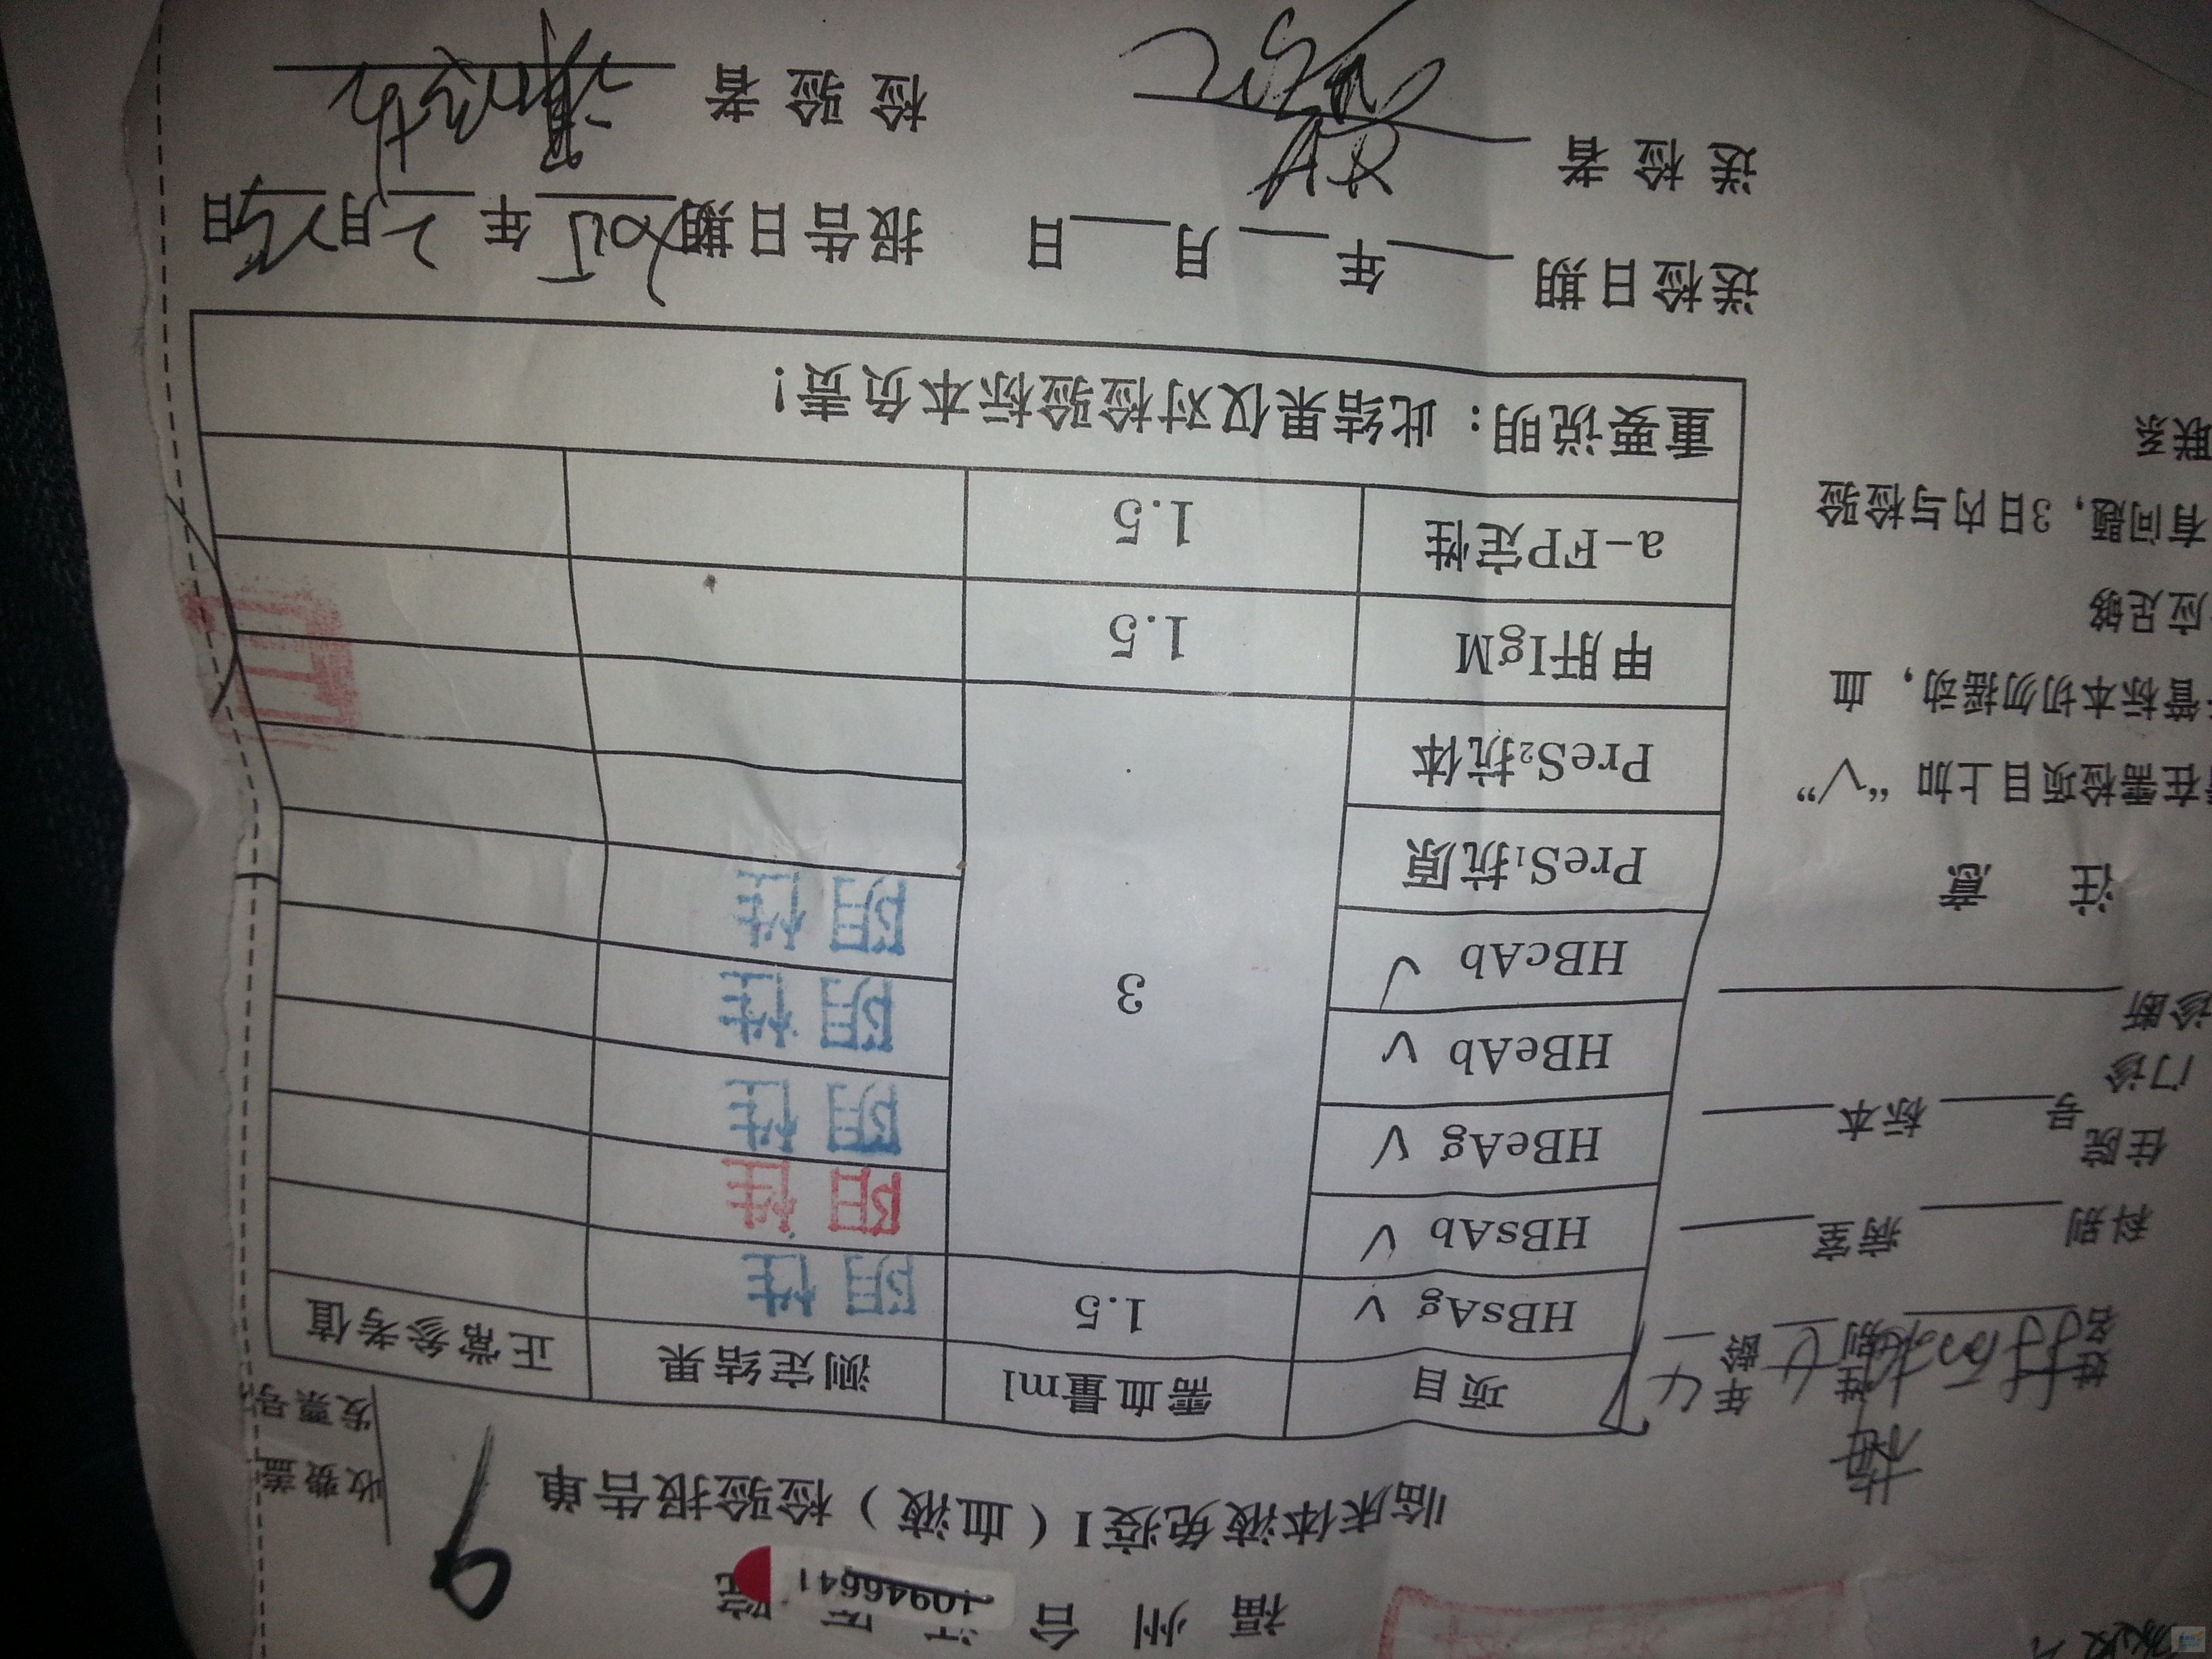 福州台江医院
10946641
临床体液免疫I（血液）检验报告单
9
收费盖
发票号
姓名 性别 女 年龄
科别 病室
住院
门诊 号 标本
诊断
注 意
在需检项目上加“√”
管标本切勿摇动，血
应足够
有问题，3日内与检验
联系
项目 需血量ml 测定结果 正常参考值
HBsAg √ 1.5 阴性
HBsAb √ 阳性
HBeAg √ 3 阴性
HBeAb √ 阴性
HBcAb √ 阴性
PreS₁抗原
PreS₂抗体
甲肝IgM 1.5
a-FP定性 1.5
重要说明：此结果仅对检验标本负责！
送检日期 年 月 日 报告日期 2015年2月25日
送检者 检验者